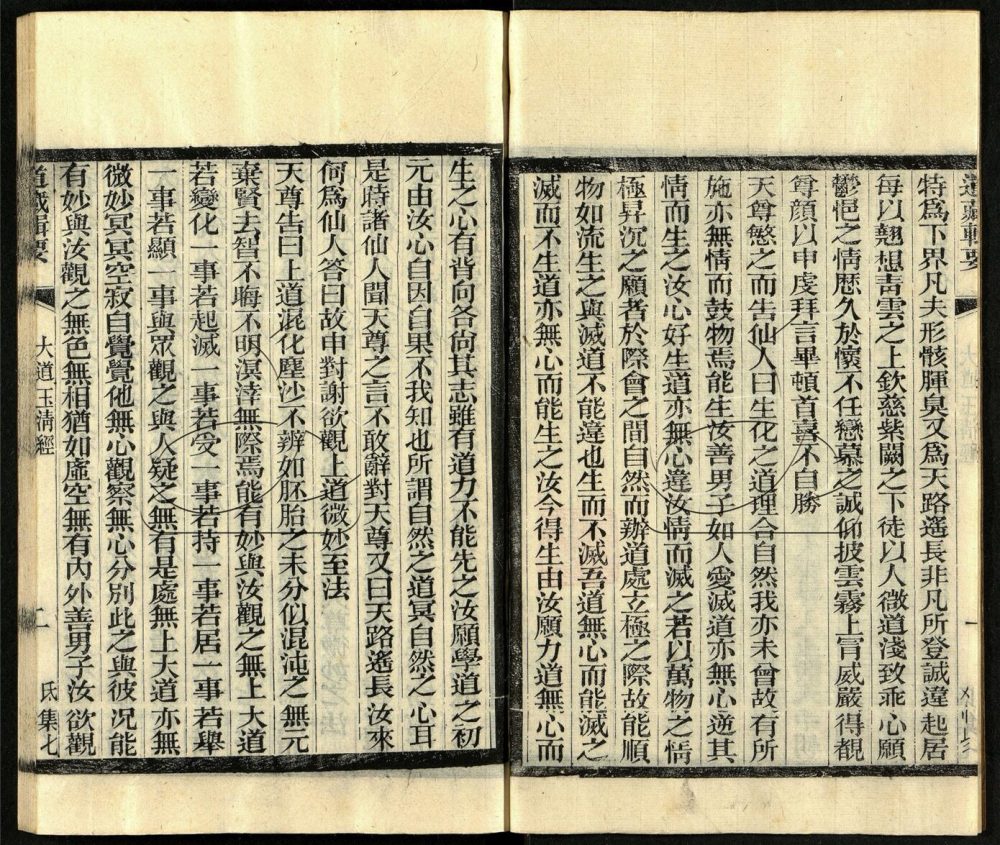 道藏輯要
特爲下界凡夫形骸腪臭又爲天路遙長非凡所登誠違起居
每以翹想青雲之上欽慈紫闕之下徒以人微道淺致乖心願
鬱悒之情歷久於懷不任戀慕之誠仰披雲霧上冐威嚴得覩
尊顏以申虔拜言畢頓首喜不自勝
天尊慜之而告仙人曰生化之道理合自然我亦未曾故有所
施亦無情而鼓物焉能生汝善男子如人愛滅道亦無心逆其
情而生之汝心好生道亦無心違汝情而滅之若以萬物之情
極昇沉之願者於際會之間自然而辦道處立極之際故能順
物如流生之與滅道不能違也生而不滅吾道無心而能滅之
滅而不生道亦無心而能生之汝今得生由汝願力道無心而
生之心有背向各尚其志雖有道力不能先之汝願學道之初
元由汝心自因自果不我知也所謂自然之道冥自然之心耳
是時諸仙人聞天尊之言不敢辭對天尊又曰天路遙長汝來
何爲仙人答曰故申對謝欲觀上道微妙至法
天尊告曰上道混化塵沙不辨如胚胎之未分似混沌之無元
棄賢去智不晦不明溟涬無際焉能有妙與汝觀之無上大道
若變化一事若起滅一事若受一事若持一事若居一事若舉
一事若顯一事與眾觀之與人疑之無有是處無上大道亦無
微妙冥冥空寂自覺覺他無心觀察無心分別此之與彼況能
有妙與汝觀之無色無相猶如虛空無有內外善男子汝欲觀
道藏輯要 大道玉清經 二 氐集七